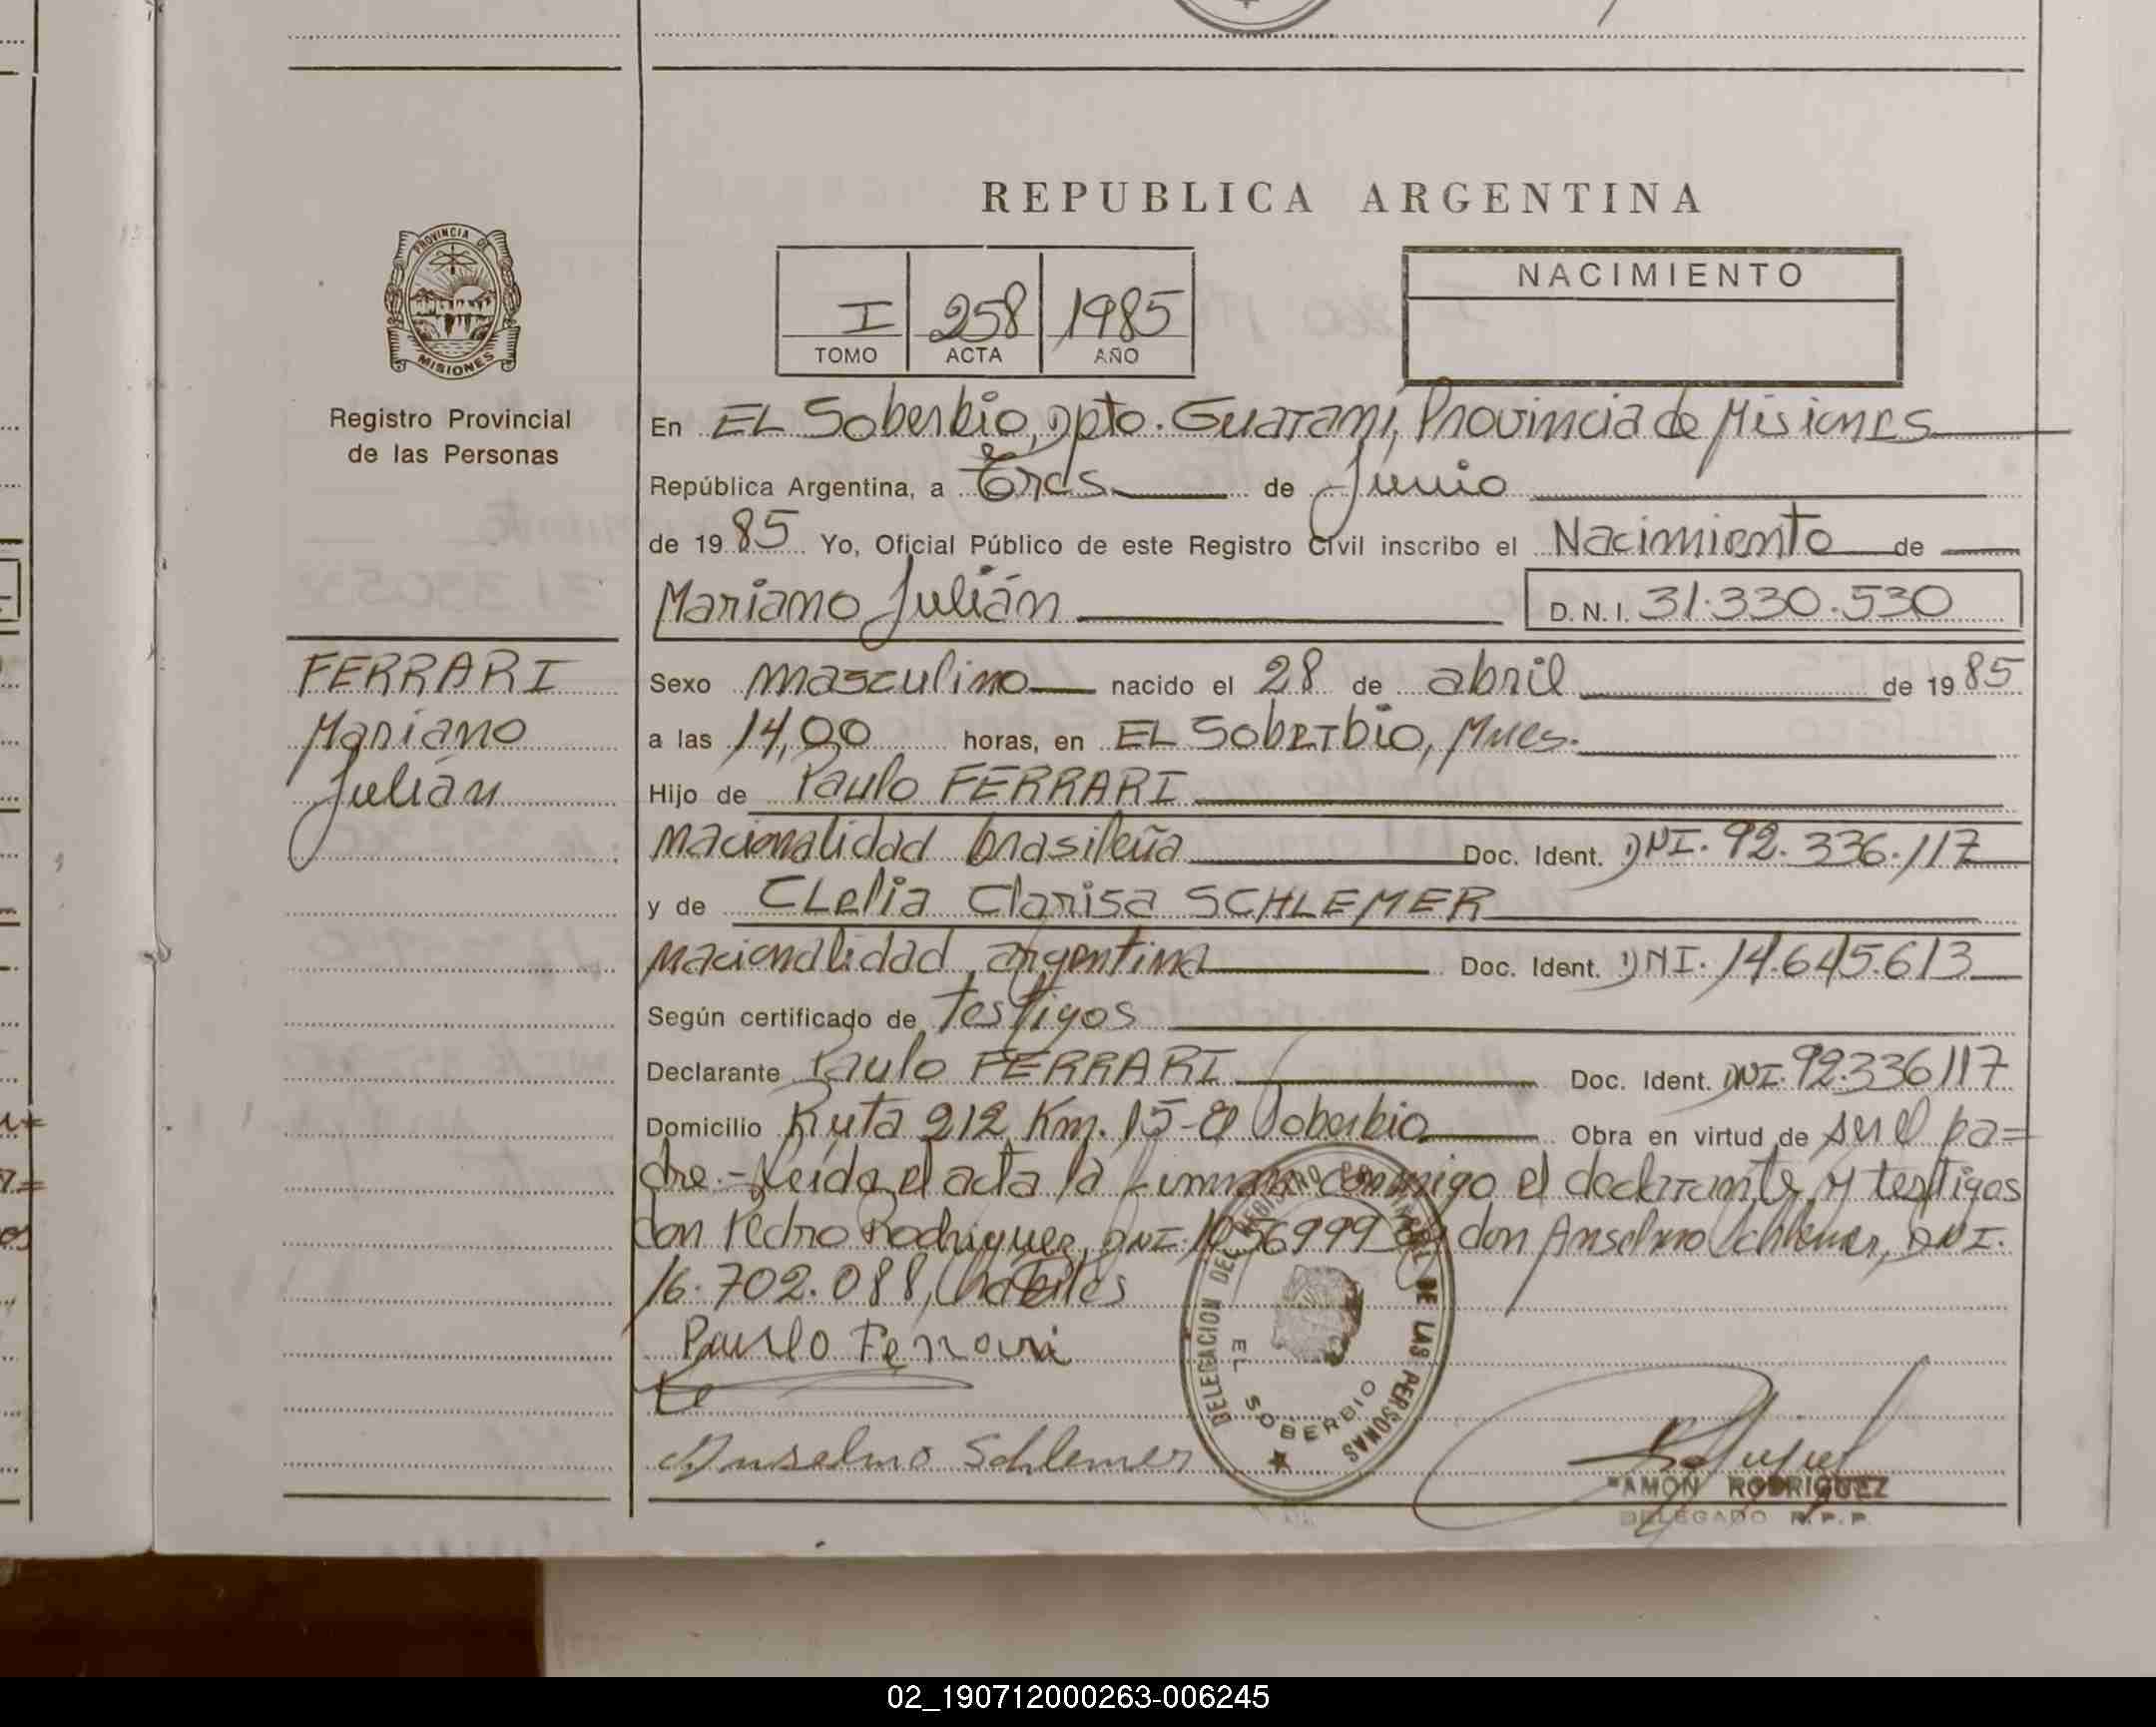 REPUBLICA ARGENTINA
PROVINCIA DE
MISIONES
Registro Provincial
de las Personas
I 258 1985
TOMO ACTA AÑO
NACIMIENTO
En EL Soberbio, Dpto. Guaraní, Provincia de Misiones
República Argentina, a Tres de Junio
de 1985 Yo, Oficial Público de este Registro Civil inscribo el Nacimiento de
Mariano Julián D.N.I. 31.330.530
FERRARI
Mariano
Julián
Sexo masculino nacido el 28 de abril de 1985
a las 14,00 horas, en EL Soberbio, Mnes.
Hijo de Paulo FERRARI
nacionalidad brasileña Doc. Ident. DNI. 92.336.117
y de CLelia Clarisa SCHLEMER
nacionalidad argentina Doc. Ident. DNI. 14.645.613
Según certificado de Testigos
Declarante Paulo FERRARI Doc. Ident. DNI. 92.336117
Domicilio Ruta 212 Km. 15-El Soberbio Obra en virtud de ser el pa=
dre.- Leída el acta la firman conmigo el declarante y testigos
don Pedro Rodriguez, DNI. don Anselmo Schlemer, DNI.
16.702.088, habiles
Paulo Ferrari
Anselmo Schlemer
DELEGACION DEL REGISTRO PROVINCIAL DE LAS PERSONAS
EL SOBERBIO
RAMON RODRIGUEZ
DELEGADO R.P.P.
02_190712000263-006245